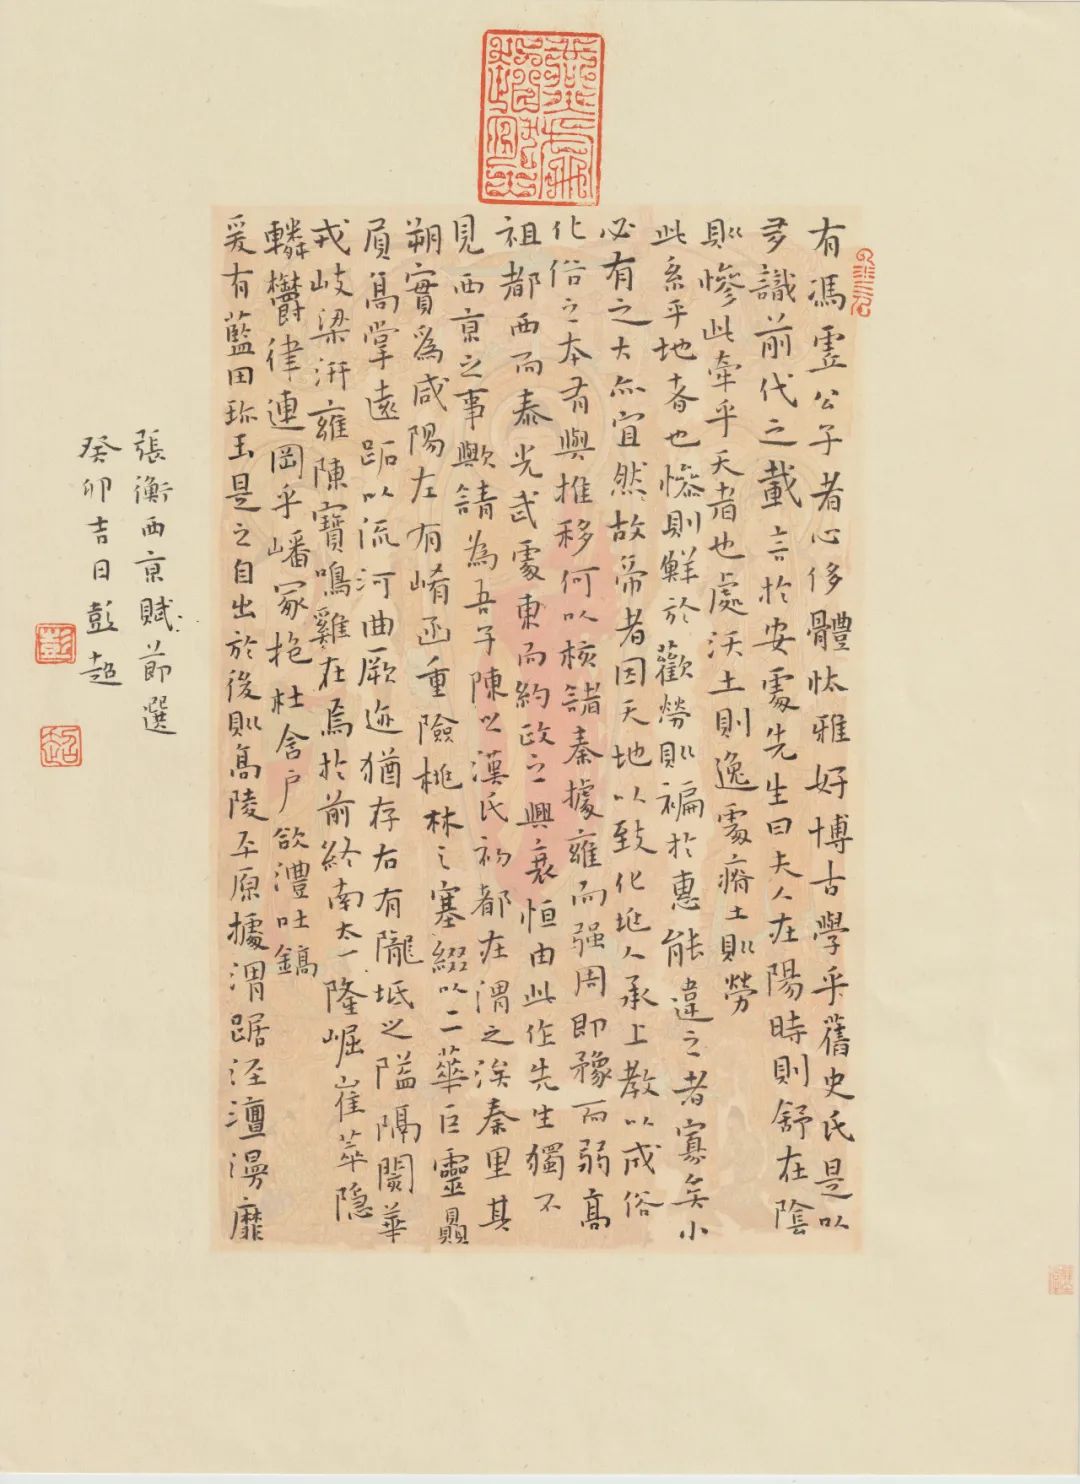 有馮虛公子者心侈體忲雅好博古學乎舊史氏是以
多識前代之載言於安處先生曰夫人在陽時則舒在陰
則慘此牽乎天者也處沃土則逸處瘠土則勞
此系乎地者也慘則鮮於歡勞則褊於惠能違之者寡矣小
必有之大亦宜然故帝者因天地以致化兆人承上教以成俗
化俗之本有與推移何以核諸秦據雍而强周即豫而弱高
祖都西而泰光武處東而約政之興衰恒由此作先生獨不
見西京之事歟請為吾子陳之漢氏初都在渭之涘秦里其
朔實爲咸陽左有崤函重險桃林之塞綴以二華巨靈贔
屓高掌遠蹠以流河曲厥迹猶存右有隴坻之隘隔閡華
戎岐梁汧雍陳寶鳴雞在焉於前終南太一隆崛崔萃隱
轔鬱律連岡乎嶓冢抱杜含戶欱澧吐鎬
爰有藍田珎玉是之自出於後則高陵平原據渭踞涇澶漫靡
張衡西京賦節選
癸卯吉日彭超
彭
超